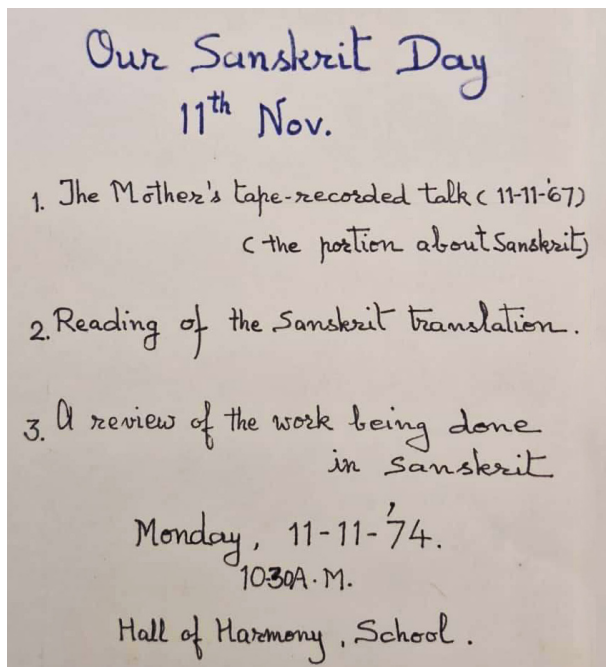 Our Sanskrit Day
11th Nov.
1. The Mother's tape-recorded talk ( 11-11-'67)
( the portion about Sanskrit)
2. Reading of the Sanskrit translation.
3. A review of the work being done
in Sanskrit
Monday, 11-11-'74.
10.30A.M.
Hall of Harmony, School.